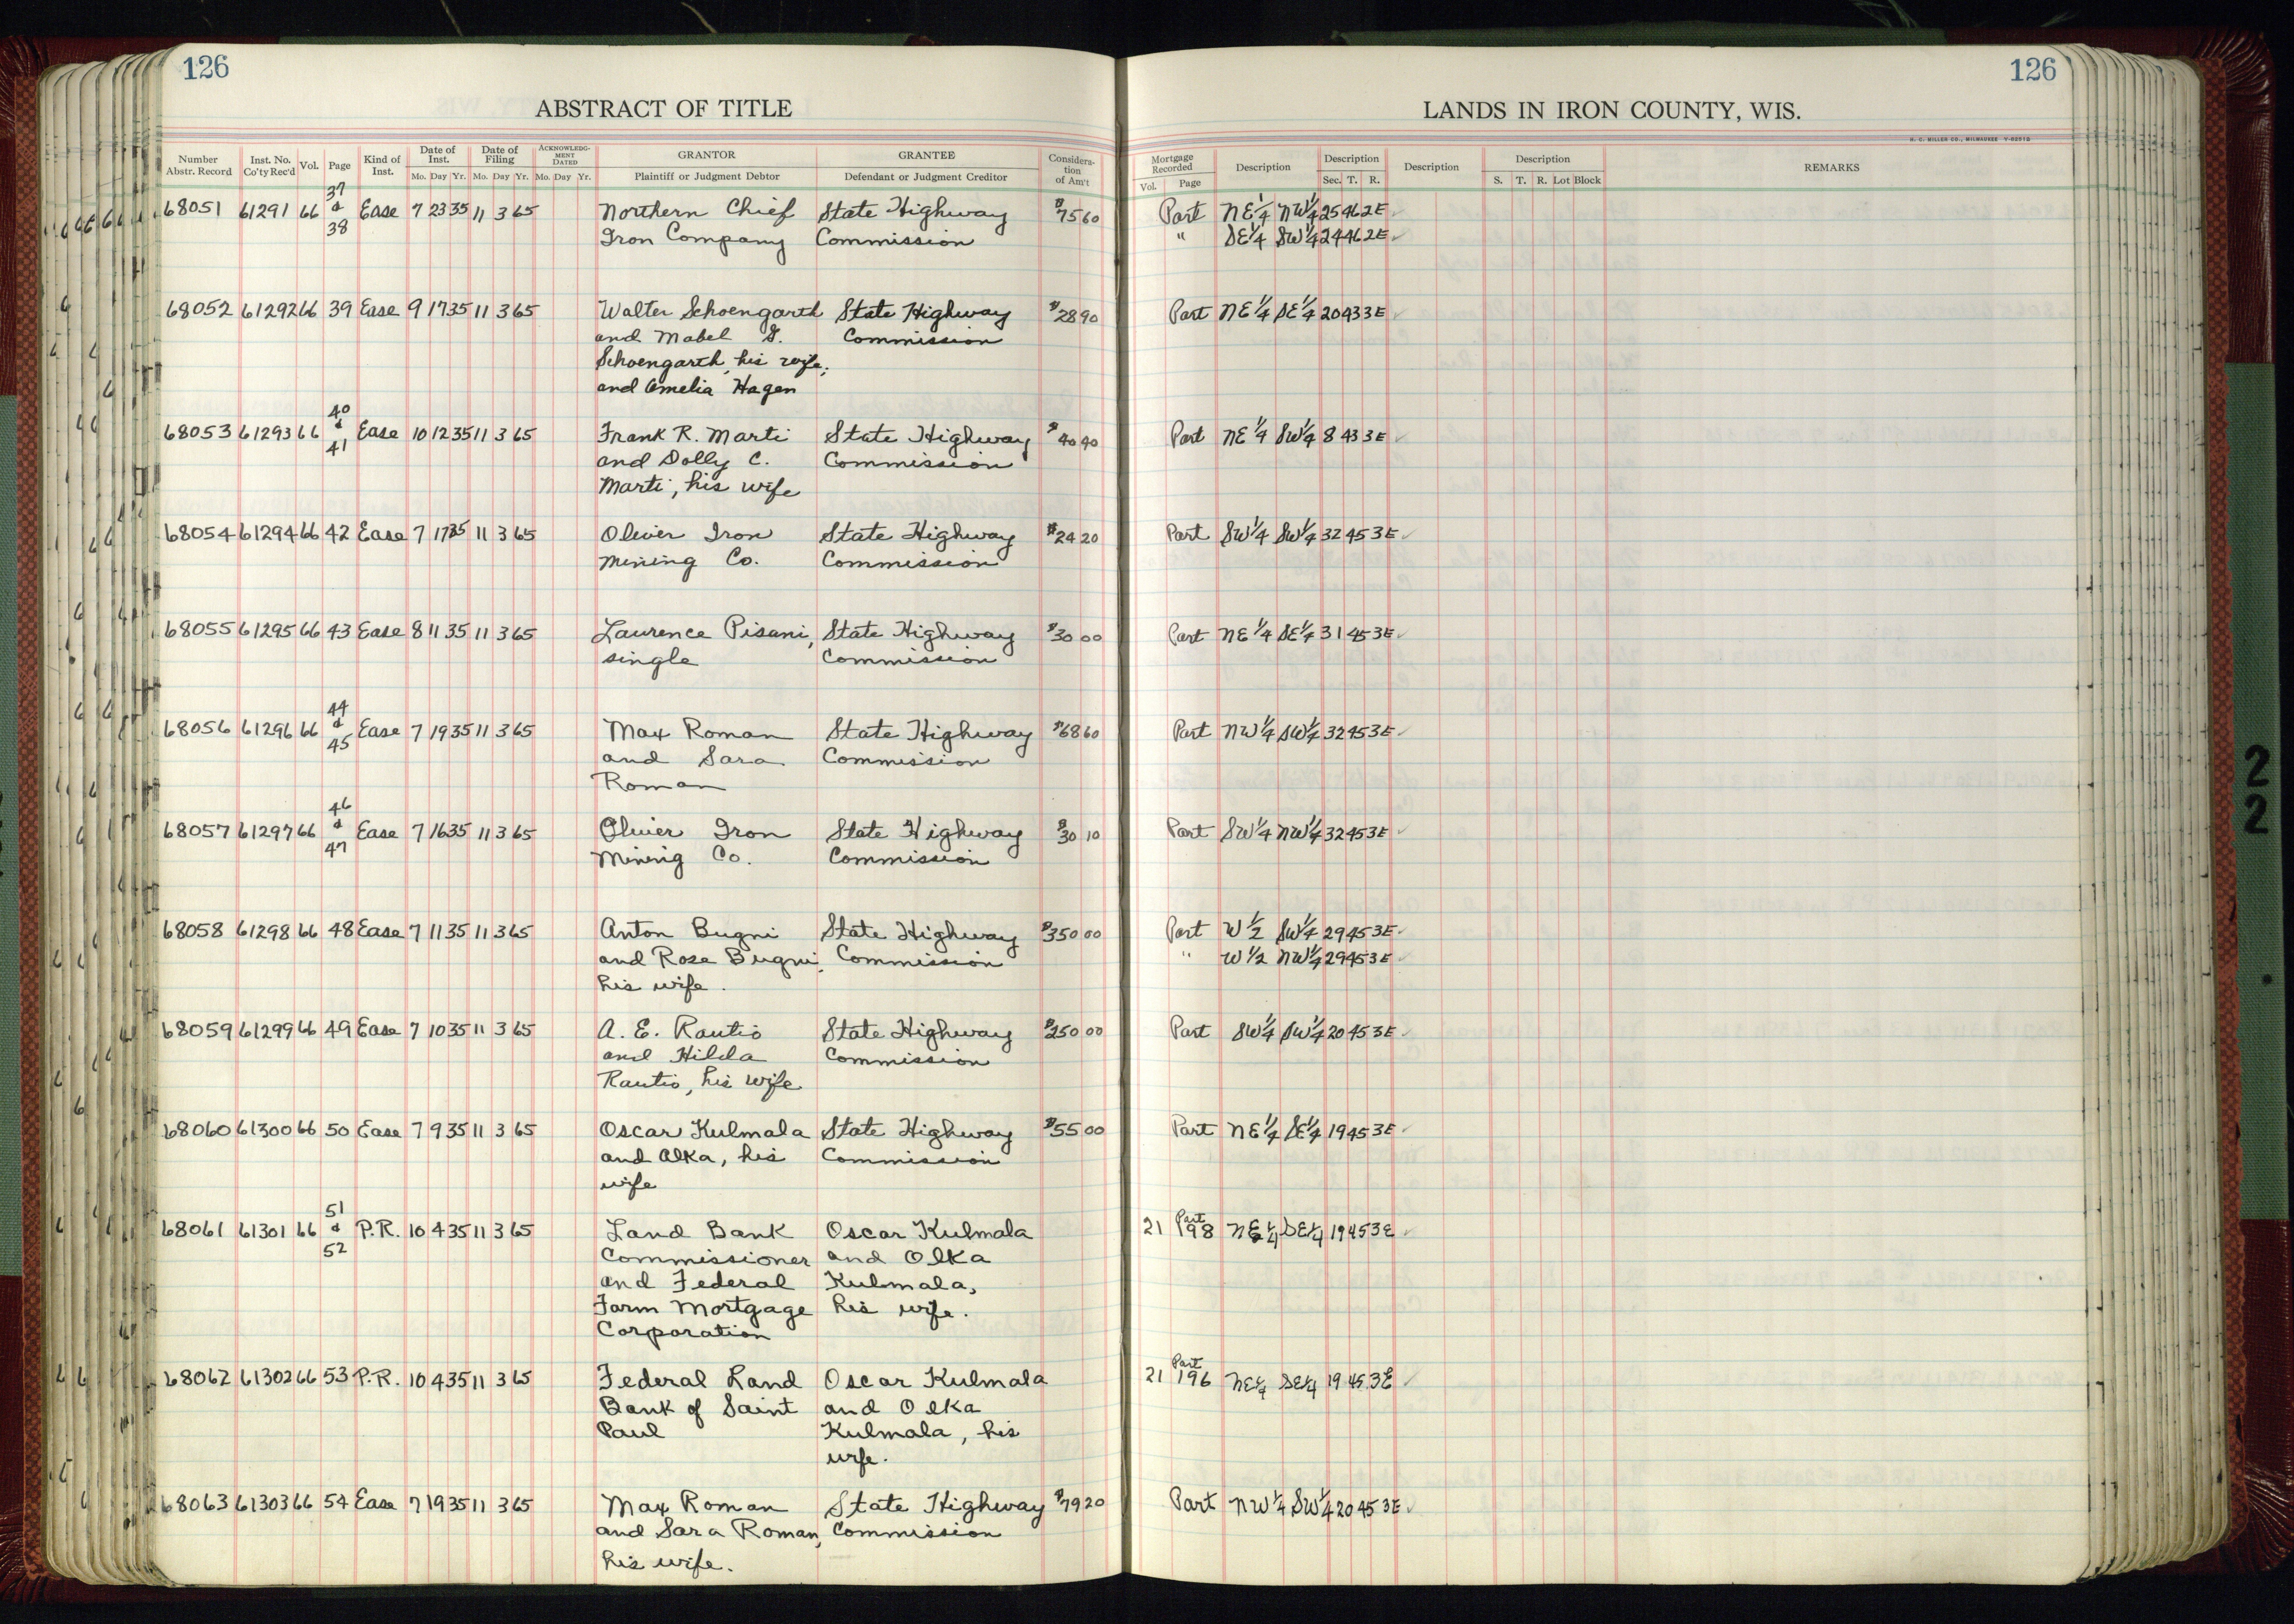 126
126
ABSTRACT OF TITLE
LANDS IN IRON COUNTY, WIS.
H. C. MILLER CO., MILWAUKEE
Number Abstr. Record Inst. No. Co'ty Rec'd Vol. Page Kind of Inst. Date of Inst. Mo. Day Yr. Date of Filing Mo. Day Yr. ACKNOWLEDGMENT DATED Mo. Day Yr. GRANTOR Plaintiff or Judgment Debtor GRANTEE Defendant or Judgment Creditor Consideration of Am't
Mortgage Recorded Vol. Page Description Description Sec. T. R. Description Description S. T. R. Lot Block REMARKS
68051 61291 66 37 & 38 Ease 7 23 35 11 3 65 Northern Chief State Highway $75 60 Part NE 1/4 NW 1/4 25 46 2E ✓
Iron Company Commission " SE 1/4 SW 1/4 24 46 2E ✓
68052 61292 66 39 Ease 9 17 35 11 3 65 Walter Schoengarth State Highway $28 90 Part NE 1/4 SE 1/4 20 43 3E
and Mabel G. Commission
Schoengarth, his wife,
and Amelia Hagen
68053 61293 66 40 & 41 Ease 10 12 35 11 3 65 Frank R. Marti State Highway $40 40 Part NE 1/4 SW 1/4 8 43 3E ✓
and Dolly C. Commission
Marti, his wife
68054 61294 66 42 Ease 7 17 35 11 3 65 Oliver Iron State Highway $24 20 Part SW 1/4 SW 1/4 32 45 3E ✓
Mining Co. Commission
68055 61295 66 43 Ease 8 11 35 11 3 65 Laurence Pisani, State Highway $30 00 Part NE 1/4 SE 1/4 31 45 3E ✓
single Commission
68056 61296 66 44 & 45 Ease 7 19 35 11 3 65 Max Roman State Highway $68 60 Part NW 1/4 SW 1/4 32 45 3E ✓
and Sara Commission
Roman
68057 61297 66 46 & 47 Ease 7 16 35 11 3 65 Oliver Iron State Highway $30 10 Part SW 1/4 NW 1/4 32 45 3E ✓
Mining Co. Commission
68058 61298 66 48 Ease 7 11 35 11 3 65 Anton Bugni State Highway $350 00 Part W 1/2 SW 1/4 29 45 3E ✓
and Rosa Bugni, Commission " W 1/2 NW 1/4 29 45 3E ✓
his wife.
68059 61299 66 49 Ease 7 10 35 11 3 65 A. E. Rautio State Highway $250 00 Part SW 1/4 SW 1/4 20 45 3E ✓
and Hilda Commission
Rautio, his wife
68060 61300 66 50 Ease 7 9 35 11 3 65 Oscar Kulmala State Highway $55 00 Part NE 1/4 SE 1/4 19 45 3E ✓
and Olka, his Commission
wife
68061 61301 66 51 & 52 P.R. 10 4 35 11 3 65 Land Bank Oscar Kulmala 21 Part 198 NE 1/4 SE 1/4 19 45 3E ✓
Commissioner and Olka
and Federal Kulmala,
Farm Mortgage his wife.
Corporation
68062 61302 66 53 P.R. 10 4 35 11 3 65 Federal Land Oscar Kulmala 21 Part 196 NE 1/4 SE 1/4 19 45 3E ✓
Bank of Saint and Olka
Paul Kulmala, his
wife.
68063 61303 66 54 Ease 7 19 35 11 3 65 Max Roman State Highway $79 20 Part NW 1/4 SW 1/4 20 45 3E ✓
and Sara Roman, Commission
his wife.
2
2